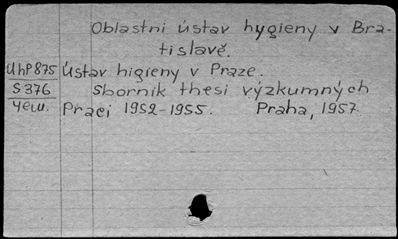 Oblastni ústav hygieny v Bra-
tislavě.
UhP875 Ústav higieny v Praze.
S376 Sborník thesi výzkumných
Yew. Praci 1952-1955. Praha, 1957.